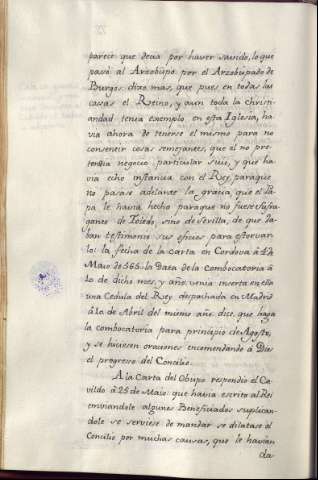 parecer que decia por haver sauido, lo que
pasó al Arzobispo por el Arzobispado de
Burgos: dixo mas, que pues en todas las
cosas el Reino, y aun toda la Christi-
andad tenia exemplo en esta Iglesia, ha-
via ahora de tenerse el mismo para no
consentir cosas semejantes, que el no pre-
tendia negocio particular suio, y que ha
via echo instancia con el Rey, paraque
no pasase adelante la gracia, que el Pa-
pa le havia hecho paraque no fuese sufra-
ganeo de Toledo, sino de Sevilla, de que da-
ban testimonio sus oficios para estorvar-
lo: la fecha de la carta en Cordova à 12
Maio de 565: la Data de la combocatoria à
10 de dicho mes, y año, venia inserta en ella
una Cedula del Rey despachada en Madrid
à 10 de Abril del mismo año dice, que haga
la combocatoria para principio de Agosto,
y se hiciesen oraciones encomendando à Dios
el progreso del Concilio.
A la Carta del Obispo respondió el Ca-
vildo à 25 de Maio que havia escrito al Rei
embiandole algunos Beneficiados suplican-
dole se serviese de mandar se dilatase el
Concilio por muchas causas, que le havian
da